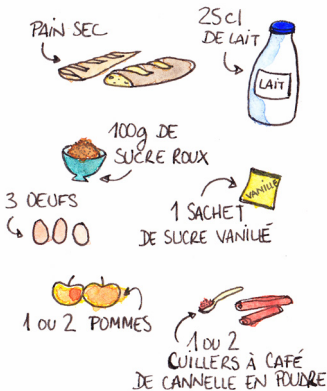 PAIN SEC
25cl
DE LAIT
LAIT
100g DE
SUCRE ROUX
3 OEUFS
VANILLE
1 SACHET
DE SUCRE VANILLÉ
1 OU 2 POMMES
1 OU 2
CUILLERS À CAFÉ
DE CANNELLE EN POUDRE